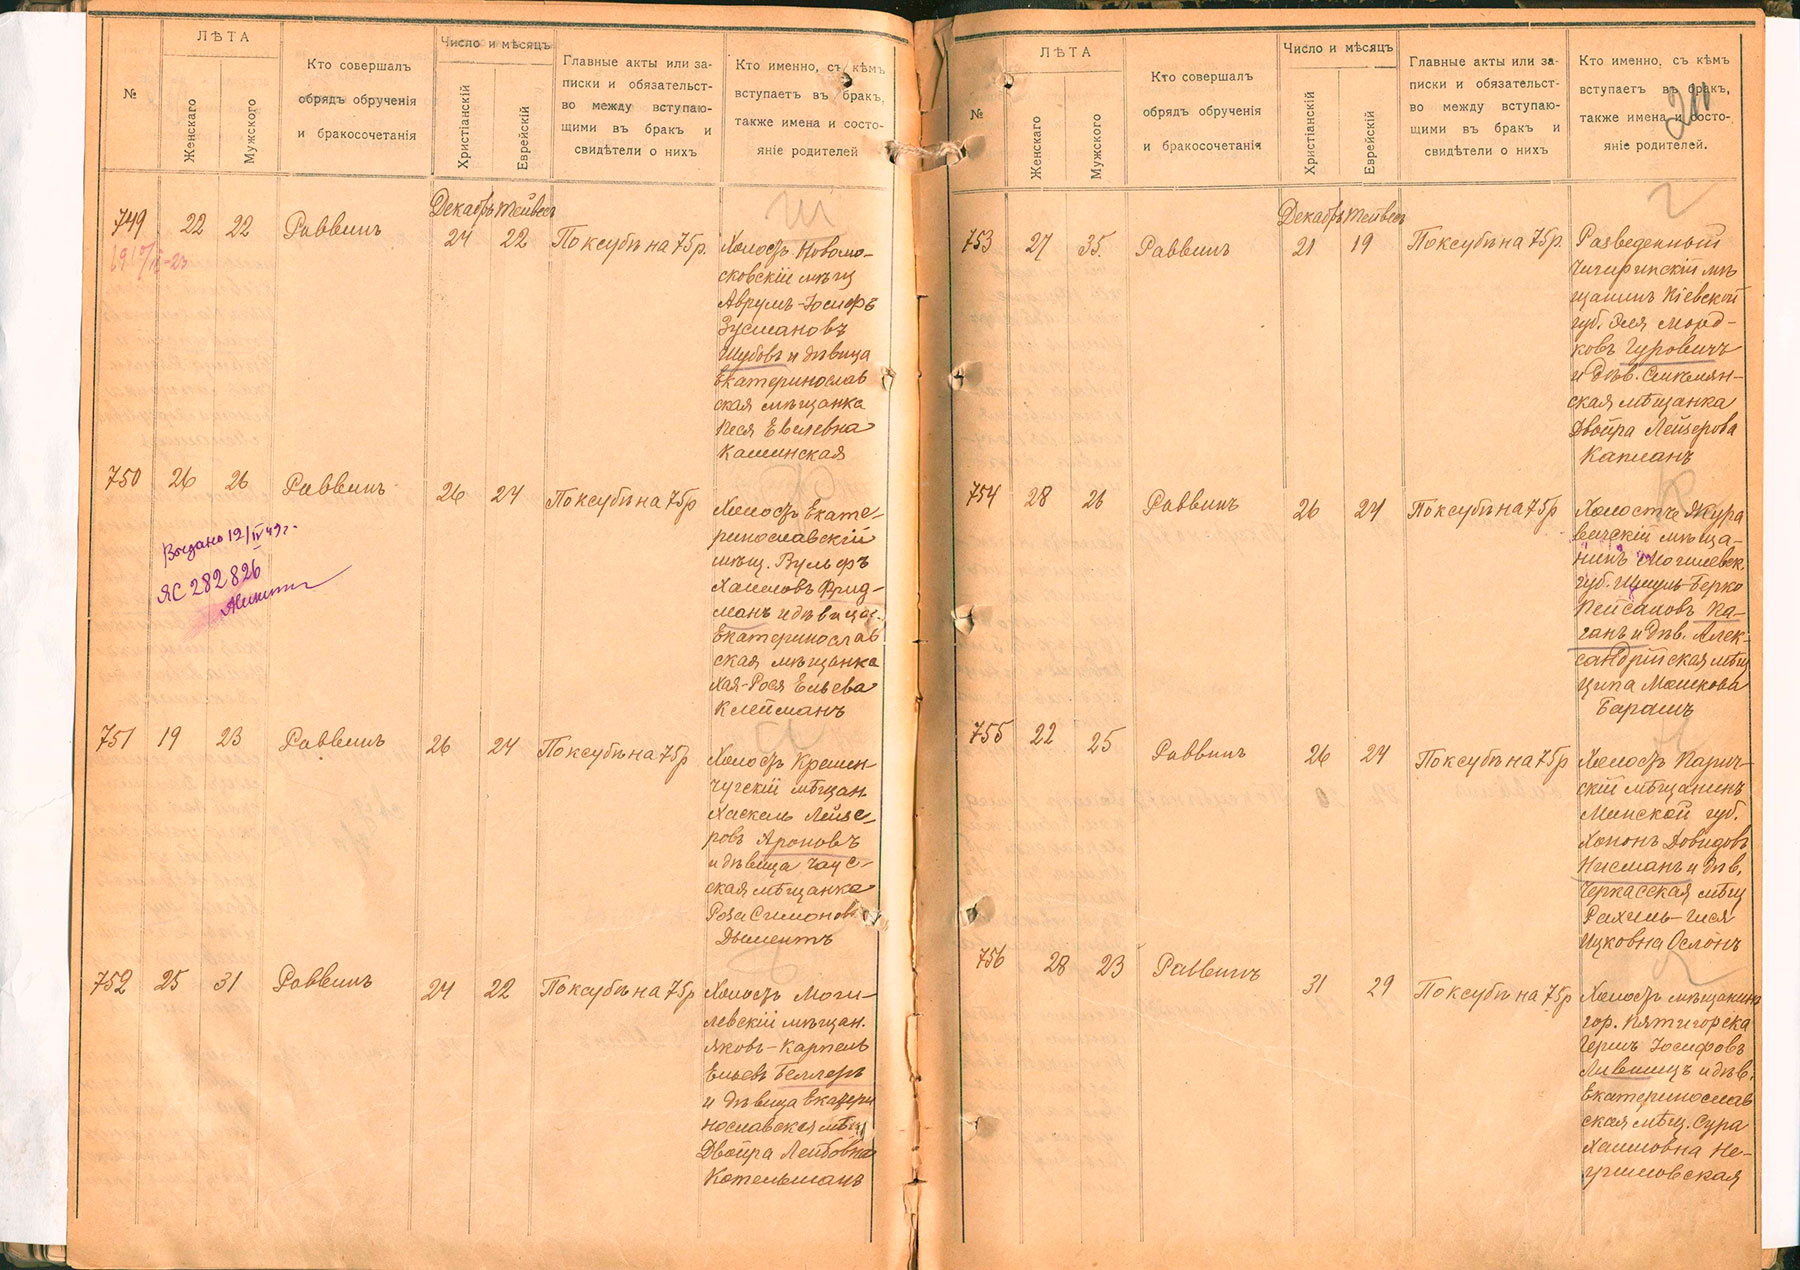 №
ЛѢТА
Женскаго
Мужского
Кто совершалъ
обрядъ обрученія
и бракосочетанія
Число и мѣсяцъ
Христіанскій
Еврейскій
Главные акты или за-
писки и обязательст-
во между вступаю-
щими въ бракъ и
свидѣтели о нихъ
Кто именно, съ кѣмъ
вступаетъ въ бракъ,
также имена и состо-
яніе родителей
749
22
22
Раввинъ
Декабрь
24
Тейвесъ
22
По ксубѣ на 75р.
Холостъ Новомо-
сковскій мѣщ
Аврумъ-Іосифъ
Зусмановъ
Шубовъ и дѣвица
Екатеринослав
ская мѣщанка
Песя Евелевна
Каминская
750
26
26
Раввинъ
26
24
По ксубѣ на 75р
Холостъ Екате-
ринославскій
мѣщ. Вульфъ
Хаимовъ Фрид-
манъ и дѣвица
Екатеринослав
ская мѣщанка
Хая-Рося Ельева
Клейманъ
Выдано 12/IV 49г.
ЯС 282826
751
19
23
Раввинъ
26
24
По ксубѣ на 75р
Холостъ Кремен
чугскій мѣщан
Хаскель Лейзе-
ровъ Ароновъ
и дѣвица Чаус-
ская мѣщанка
Роза Симонов
Дыментъ
752
25
31
Раввинъ
24
22
По ксубѣ на 75р
Холостъ Моги-
левскій мѣщан.
Яковъ-Карпель
Ельевъ Беллеръ
и дѣвица Екатери
нославская мѣщ
Двойра Лейбовна
Котельманъ
№
ЛѢТА
Женскаго
Мужского
Кто совершалъ
обрядъ обрученія
и бракосочетанія
Число и мѣсяцъ
Христіанскій
Еврейскій
Главные акты или за-
писки и обязательст-
во между вступаю-
щими въ бракъ и
свидѣтели о нихъ
Кто именно, съ кѣмъ
вступаетъ въ бракъ,
также имена и состо-
яніе родителей.
753
27
35.
Раввинъ
Декабрь
21
Тейвесъ
19
По ксубѣ на 75р.
Разведенный
Чигиринскій мѣ
щанинъ Кіевской
губ. Эля Морд-
ковъ Гуровичъ
и дѣв. Смилян-
ская мѣщанка
Двойра Лейзерова
Капланъ
754
28
26
Раввинъ
26
24
По ксубѣ на 75р
Холостъ Жура
вичскій мѣща-
нинъ Могилевск.
губ. Шмуль-Берко
Пейсаховъ Ка-
ганъ и дѣв. Алек-
сандрійская мѣщ
Ципа Мошкова
Барашъ
755
22
25
Раввинъ
26
24
По ксубѣ на 75р
Холостъ Парич-
скій мѣщанинъ
Минской губ.
Хононъ Довидовъ
Нисманъ и дѣв.
Черкасская мѣщ
Рахиль-Гися
Ицковна Ослонъ
756
28
23
Раввинъ
31
29
По ксубѣ на 75р
Холостъ мѣщанинъ
гор. Пятигорска
Гершъ Іосифовъ
Лившицъ и дѣв.
Екатеринослав
ская мѣщ. Сура
Хаимовна Не-